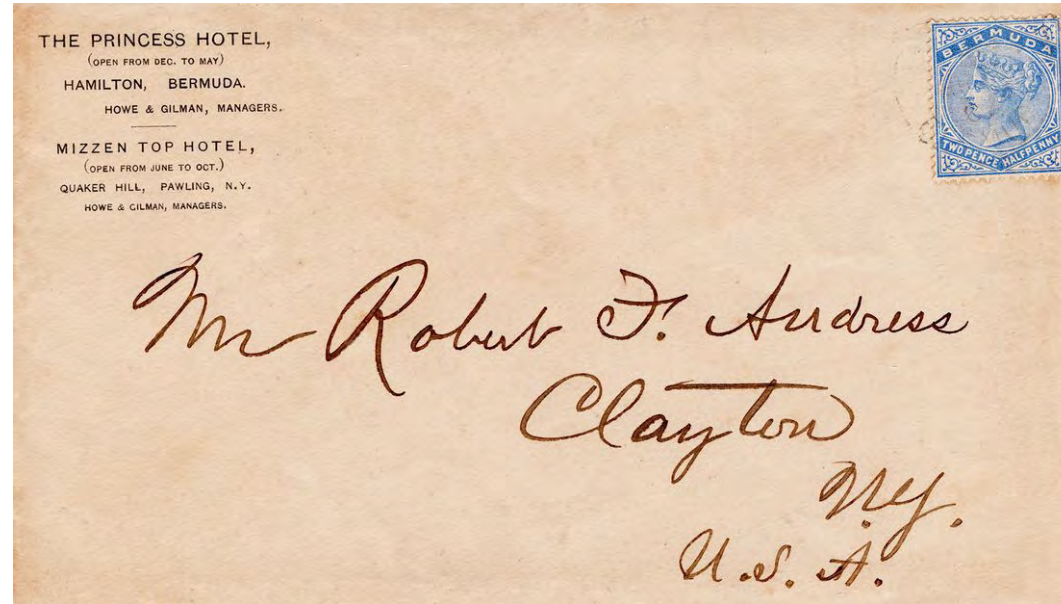 THE PRINCESS HOTEL,
(OPEN FROM DEC. TO MAY)
HAMILTON, BERMUDA.
HOWE & GILMAN, MANAGERS.
MIZZEN TOP HOTEL,
(OPEN FROM JUNE TO OCT.)
QUAKER HILL, PAWLING, N.Y.
HOWE & GILMAN, MANAGERS.
BERMUDA
TWO PENCE HALFPENNY
Mr Robert F. Andress
Clayton
N.Y.
U.S.A.